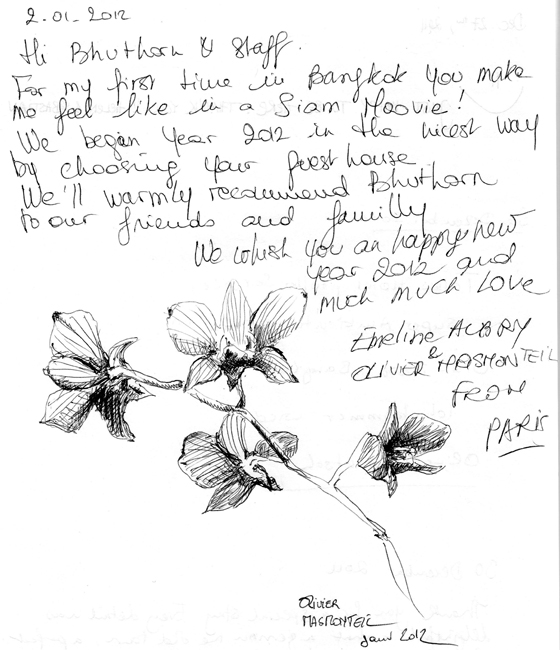 2.01.2012
Hi Bhuthorn & Staff.
For my first time in Bangkok you make
me feel like in a Siam Moovie!
We began year 2012 in the nicest way
by choosing your guest house
We'll warmly recommend Bhuthorn
to our friends and familly
We whish you an happy new
year 2012 and
much much Love
Emeline AUBRY
& OLIVIER MASMONTEIL
FROM
PARIS
OLIVIER
MASMONTEIL
janv 2012